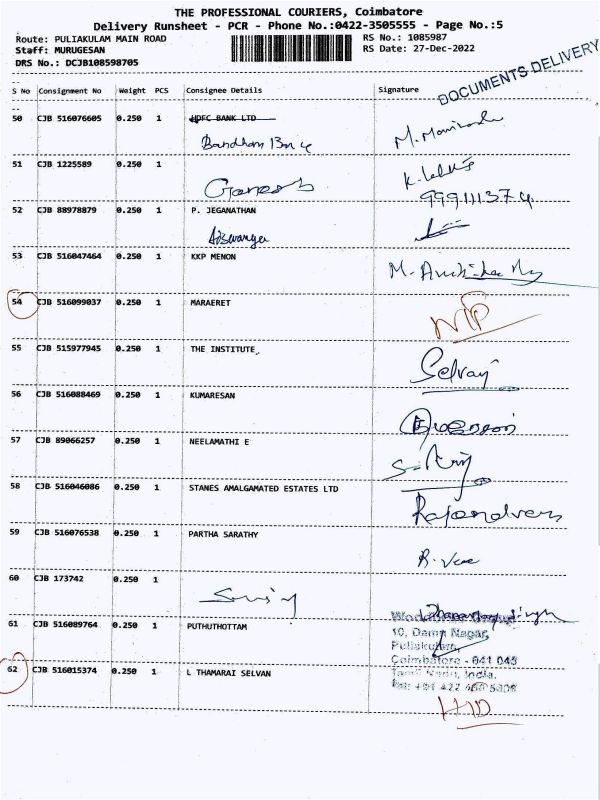 THE PROFESSIONAL COURIERS, Coimbatore
Delivery Runsheet - PCR - Phone No.:0422-3505555 - Page No.:5
Route: PULIAKULAM MAIN ROAD RS No.: 1085987
Staff: MURUGESAN RS Date: 27-Dec-2022
DRS No.: DCJB108598705
DOCUMENTS DELIVERY
S No Consignment No Weight PCS Consignee Details Signature
50 CJB 516076605 0.250 1 HDFC BANK LTD
Bandhan
51 CJB 1225589 0.250 1
Ganesh
52 CJB 88978879 0.250 1 P. JEGANATHAN
Aiswarya
53 CJB 516047464 0.250 1 KKP MENON
54 CJB 516099037 0.250 1 MARAERET
55 CJB 515977945 0.250 1 THE INSTITUTE,
Selvaj
56 CJB 516088469 0.250 1 KUMARESAN
57 CJB 89066257 0.250 1 NEELAMATHI E
58 CJB 516046086 0.250 1 STANES AMALGAMATED ESTATES LTD
59 CJB 516076538 0.250 1 PARTHA SARATHY
60 CJB 173742 0.250 1
61 CJB 516089764 0.250 1 PUTHUTHOTTAM
10, Damu Nagar,
Puliakulam,
Coimbatore - 641 045
Tamil Nadu, India.
62 CJB 516015374 0.250 1 L THAMARAI SELVAN